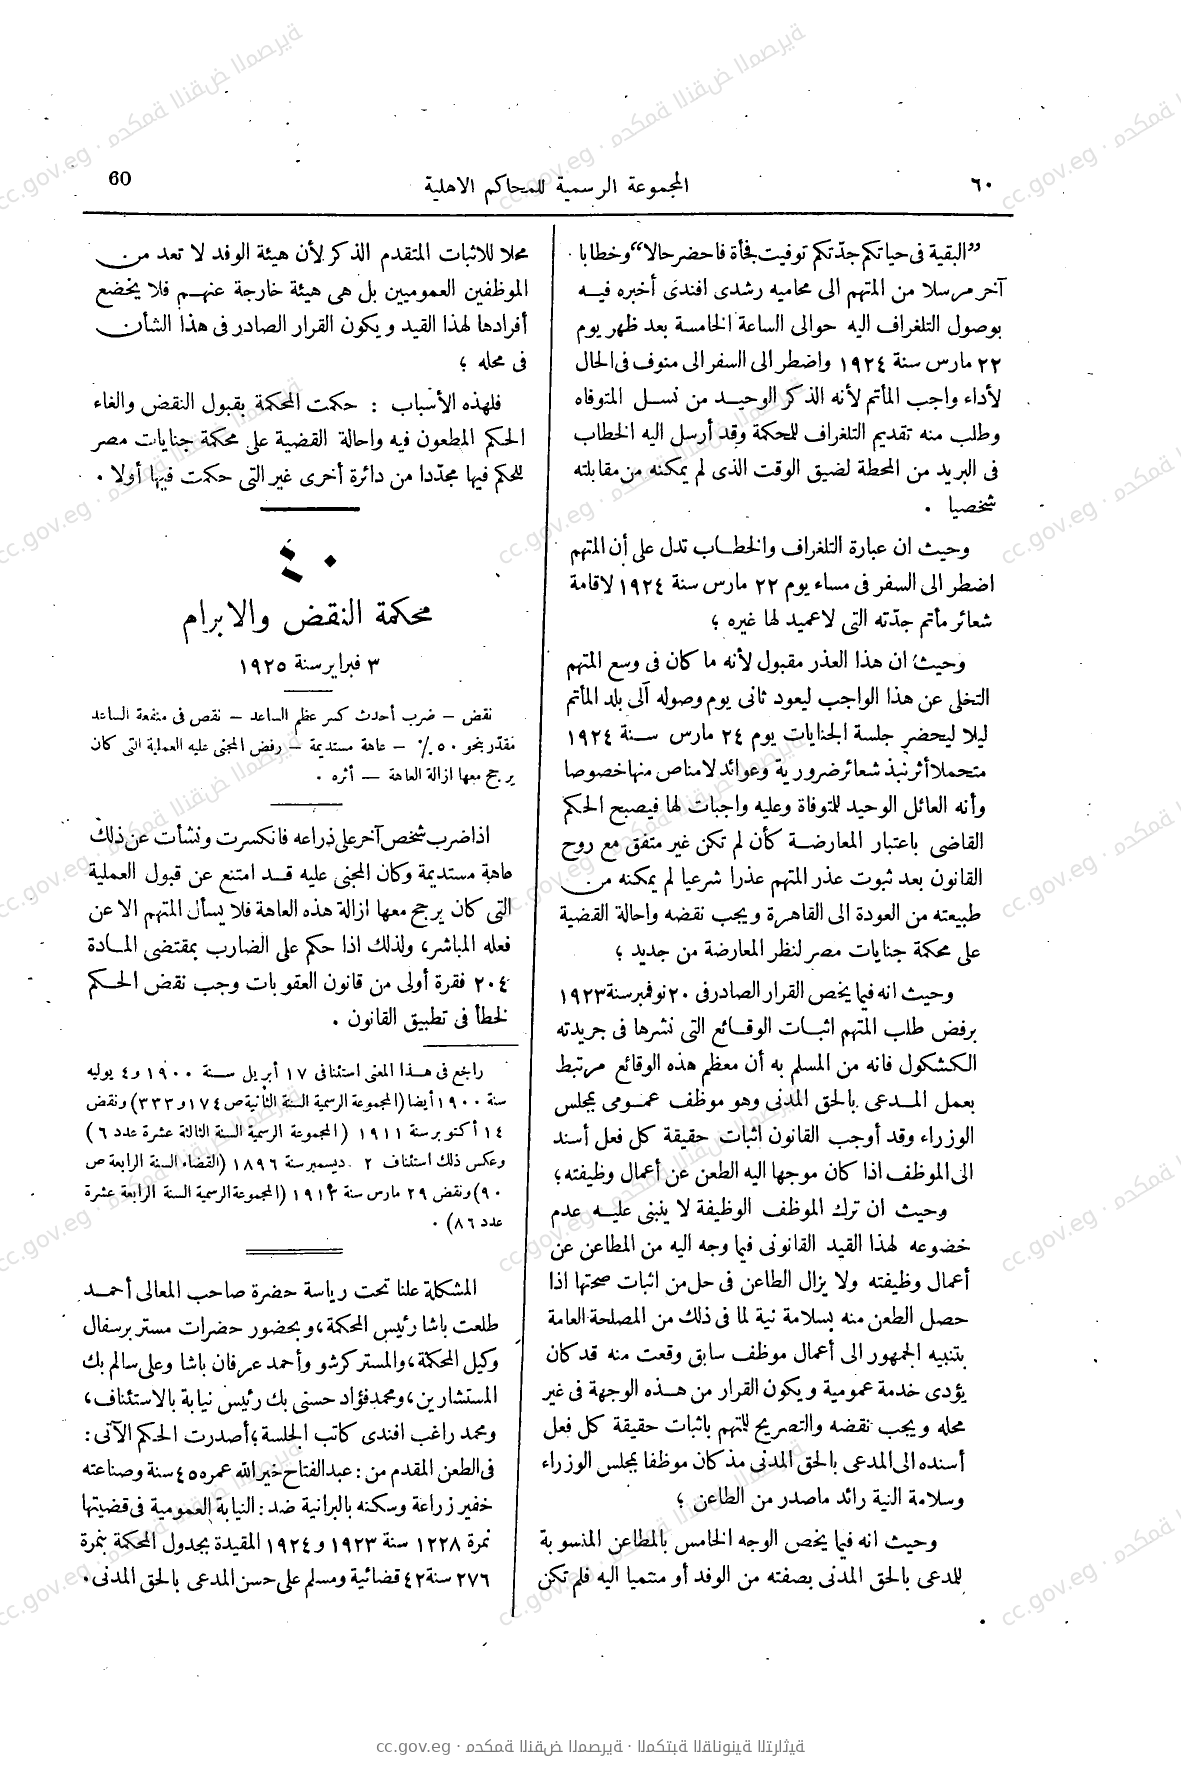 ٦٠
المجموعة الرسمية للمحاكم الاهلية
60
”البقية فى حياتكم جدّتكم توفيت فجأة فاحضر حالا“ وخطابا
آخر مرسلا من المتهم الى محاميه رشدى افندى أخبره فيه
بوصول التلغراف اليه حوالى الساعة الخامسة بعد ظهر يوم
٢٢ مارس سنة ١٩٢٤ واضطر الى السفر الى منوف فى الحال
لأداء واجب المأتم لأنه الذكر الوحيد من نسل المتوفاه
وطلب منه تقديم التلغراف للمحكمة وقد أرسل اليه الخطاب
فى البريد من المحطة لضيق الوقت الذى لم يمكنه من مقابلته
شخصيا .
وحيث ان عبارة التلغراف والخطاب تدل على أن المتهم
اضطر الى السفر فى مساء يوم ٢٢ مارس سنة ١٩٢٤ لاقامة
شعائر مأتم جدّته التى لاعميد لها غيره ؛
وحيث ان هذا العذر مقبول لأنه ما كان فى وسع المتهم
التخلى عن هذا الواجب ليعود ثانى يوم وصوله الى بلد المأتم
ليلا ليحضر جلسة الجنايات يوم ٢٤ مارس سنة ١٩٢٤
متحملا أثر نبذ شعائر ضرورية وعوائد لامناص منها خصوصا
وأنه العائل الوحيد للتوفاة وعليه واجبات لها فيصبح الحكم
القاضى باعتبار المعارضة كأن لم تكن غير متفق مع روح
القانون بعد ثبوت عذر المتهم عذرا شرعيا لم يمكنه من
طبيعته من العودة الى القاهرة ويجب نقضه واحالة القضية
على محكمة جنايات مصر لنظر المعارضة من جديد ؛
وحيث انه فيما يخص القرار الصادر فى ٢٠ نوفمبر سنة ١٩٢٣
برفض طلب المتهم اثبات الوقائع التى نشرها فى جريدته
الكشكول فانه من المسلم به أن معظم هذه الوقائع مرتبط
بعمل المدعى بالحق المدنى وهو موظف عمومى بمجلس
الوزراء وقد أوجب القانون اثبات حقيقة كل فعل أسند
الى الموظف اذا كان موجها اليه الطعن عن أعمال وظيفته ؛
وحيث ان ترك الموظف الوظيفة لا ينبنى عليه عدم
خضوعه لهذا القيد القانونى فيما وجه اليه من المطاعن عن
أعمال وظيفته ولا يزال الطاعن فى حل من اثبات صحتها اذا
حصل الطعن منه بسلامة نية لما فى ذلك من المصلحة العامة
بتنبيه الجمهور الى أعمال موظف سابق وقعت منه قد كان
يؤدى خدمة عمومية ويكون القرار من هذه الوجهة فى غير
محله ويجب نقضه والتصريح للتهم باثبات حقيقة كل فعل
أسنده الى المدعى بالحق المدنى مذ كان موظفا بمجلس الوزراء
وسلامة النية رائد ماصدر من الطاعن ؛
وحيث انه فيما يخص الوجه الخامس بالمطاعن المنسوبة
للمدعى بالحق المدنى بصفته من الوفد أو منتميا اليه فلم تكن
محلا للاثبات المتقدم الذكر لأن هيئة الوفد لا تعد من
الموظفين العموميين بل هى هيئة خارجة عنهم فلا يخضع
أفرادها لهذا القيد ويكون القرار الصادر فى هذا الشأن
فى محله ؛
فلهذه الأسباب : حكمت المحكمة بقبول النقض والغاء
الحكم المطعون فيه واحالة القضية على محكمة جنايات مصر
للحكم فيها مجدّدا من دائرة أخرى غير التى حكمت فيها أولا .
٤٠
محكمة النقض والابرام
٣ فبراير سنة ١٩٢٥
نقض – ضرب أحدث كسر عظم الساعد – نقص فى منفعة الساعد
مقدّر بنحو ٥٠٪ – عاهة مستديمة – رفض المجنى عليه العملية التى كان
يرجح معها ازالة العاهة – أثره .
اذا ضرب شخص آخر على ذراعه فانكسرت ونشأت عن ذلك
عاهة مستديمة وكان المجنى عليه قد امتنع عن قبول العملية
التى كان يرجح معها ازالة هذه العاهة فلا يسأل المتهم الا عن
فعله المباشر، ولذلك اذا حكم على الضارب بمقتضى المادة
٢٠٤ فقرة أولى من قانون العقوبات وجب نقض الحكم
لخطأ فى تطبيق القانون .
راجع فى هذا المعنى استئنافى ١٧ أبريل سنة ١٩٠٠ و٤ يوليه
سنة ١٩٠٠ أيضا (المجموعة الرسمية السنة الثانية ص ١٧٤ و٣٣٣) ونقض
١٤ أكتوبر سنة ١٩١١ (المجموعة الرسمية السنة الثالثة عشرة عدد ٦)
وعكس ذلك استئناف ٢ ديسمبر سنة ١٨٩٦ (القضاء السنة الرابعة ص
٩٠) ونقض ٢٩ مارس سنة ١٩١٣ (المجموعة الرسمية السنة الرابعة عشرة
عدد ٨٦) .
المشكلة علنا تحت رياسة حضرة صاحب المعالى أحمد
طلعت باشا رئيس المحكمة، وبحضور حضرات مستر برسفال
وكيل المحكمة، والمستر كرشو وأحمد عرفان باشا وعلى سالم بك
المستشارين، ومحمد فؤاد حسنى بك رئيس نيابة بالاستئناف،
ومحمد راغب افندى كاتب الجلسة؛ أصدرت الحكم الآتى :
فى الطعن المقدم من : عبد الفتاح خير الله عمره ٤٥ سنة وصناعته
خفير زراعة وسكنه بالبرانية ضد : النيابة العمومية فى قضيتها
نمرة ١٢٢٨ سنة ١٩٢٣ و١٩٢٤ المقيدة بجدول المحكمة بنمرة
٢٧٦ سنة ٤٢ قضائية ومسلم على حسن المدعى بالحق المدنى .
cc.gov.eg · محكمة النقض المصرية · المكتبة القانونية التراثية